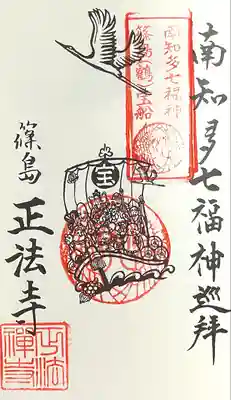 南知多七福神巡拝
南知多七福神
篠島鶴宝船
宝
篠島
正法寺
正法
禅寺